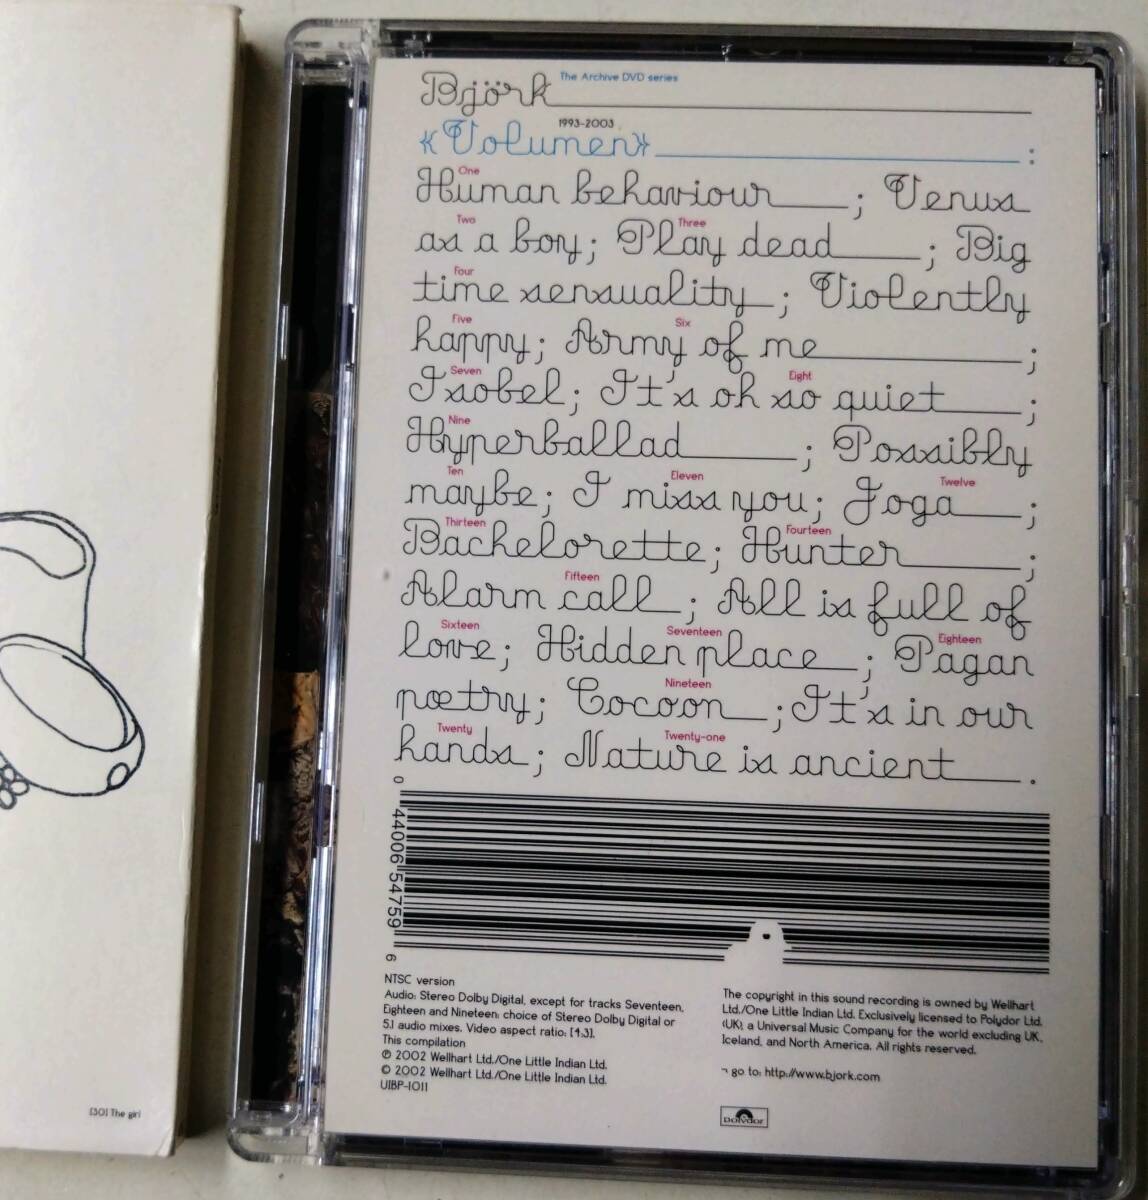 Björk The Archive DVD series
1993-2003
«Volumen» :
One
Human behaviour ; Venus
Two Three
as a boy; Play dead ; Big
Four
time sensuality ; Violently
Five Six
happy; Army of me ;
Seven Eight
Isobel; It's oh so quiet ;
Nine
Hyperballad ; Possibly
Ten Eleven Twelve
maybe; I miss you; Joga ;
Thirteen Fourteen
Bachelorette; Hunter ;
Fifteen
Alarm call ; All is full of
Sixteen Seventeen Eighteen
love; Hidden place ; Pagan
Nineteen
pœtry; Cocoon ; It's in our
Twenty Twenty-one
hands ; Nature is ancient .
0 44006 54759 6
NTSC version
Audio: Stereo Dolby Digital, except for tracks Seventeen,
Eighteen and Nineteen: choice of Stereo Dolby Digital or
5.1 audio mixes. Video aspect ratio: [4:3].
This compilation
℗ 2002 Wellhart Ltd./One Little Indian Ltd.
© 2002 Wellhart Ltd./One Little Indian Ltd.
UIBP-1011
The copyright in this sound recording is owned by Wellhart
Ltd./One Little Indian Ltd. Exclusively licensed to Polydor Ltd.
(UK), a Universal Music Company for the world excluding UK,
Iceland, and North America. All rights reserved.
¬ go to: http://www.bjork.com
Polydor
[30] The girl